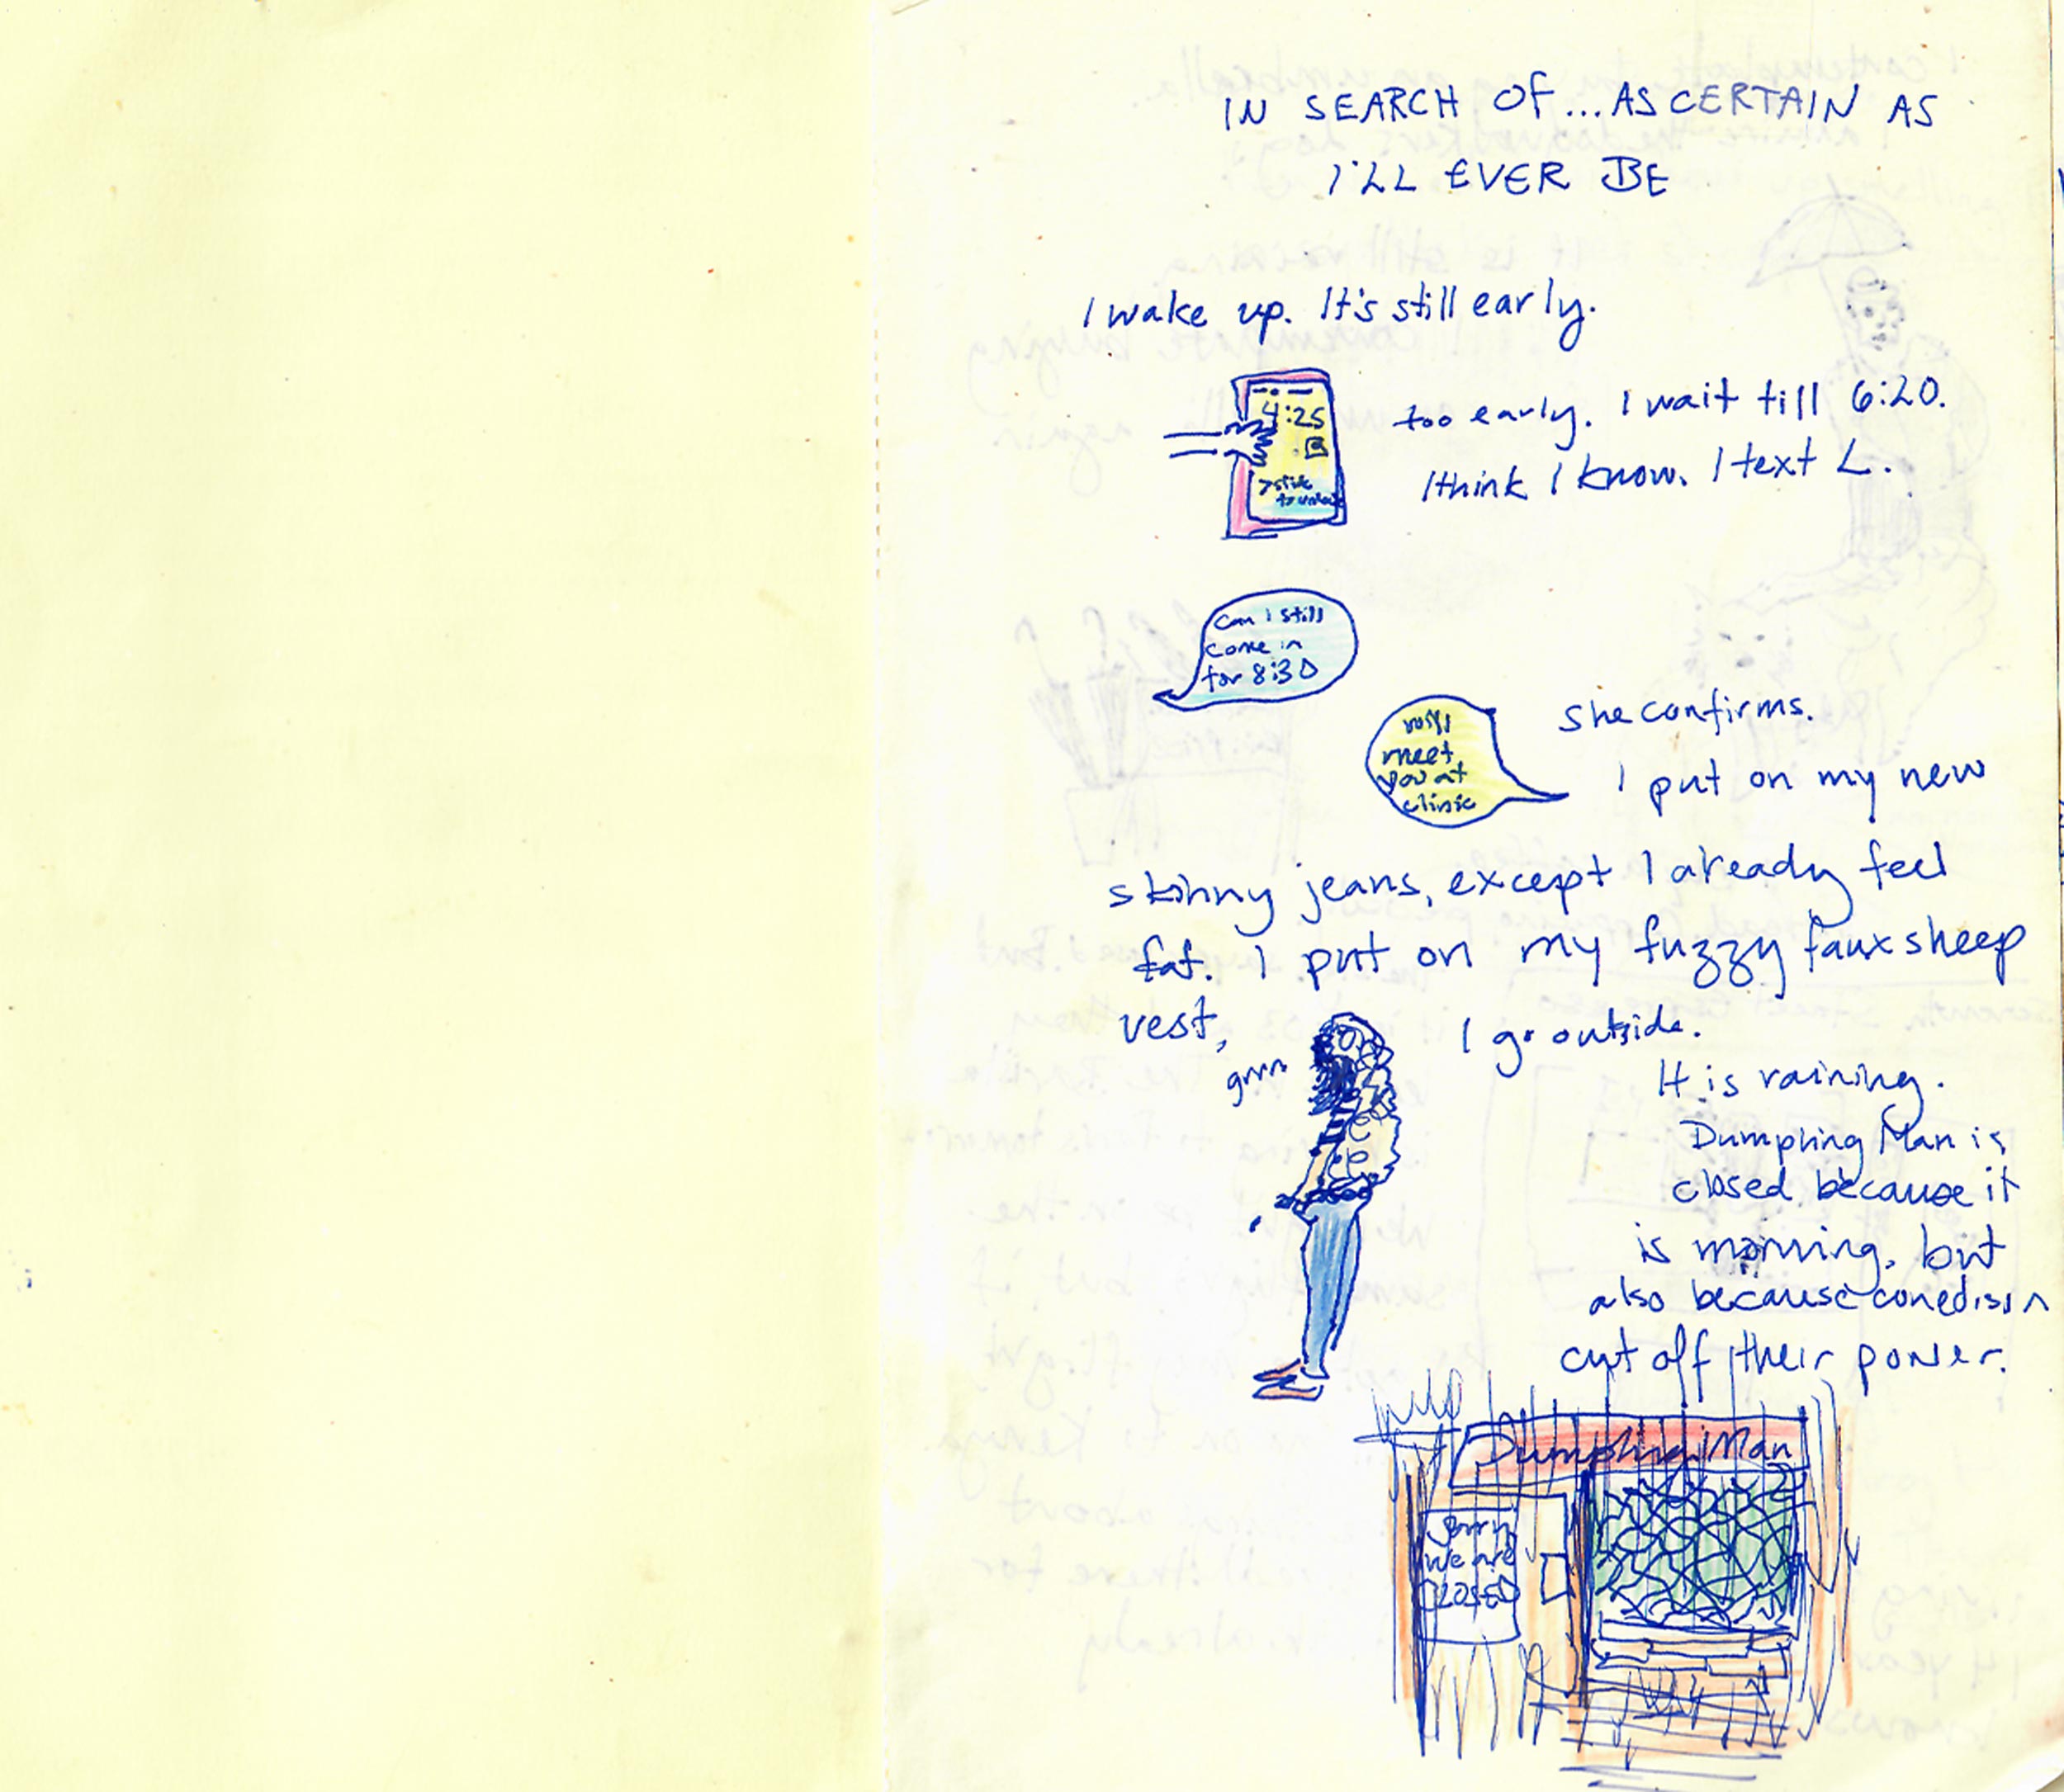 IN SEARCH OF... AS CERTAIN AS
I'LL EVER BE
I wake up. It's still early.
4:25
>slide
to unlock
too early. I wait till 6:20.
I think I know. I text L.
Can I still
come in
for 8:30
meet
you at
clinic
She confirms.
I put on my new
skinny jeans, except I already feel
fat. I put on my fuzzy faux sheep
vest,
grrr
I go outside.
It is raining.
Dumpling Man is
closed because it
is morning, but
also because conedison
cut off their power.
Dumpling Man
Sorry
we are
CLOSED